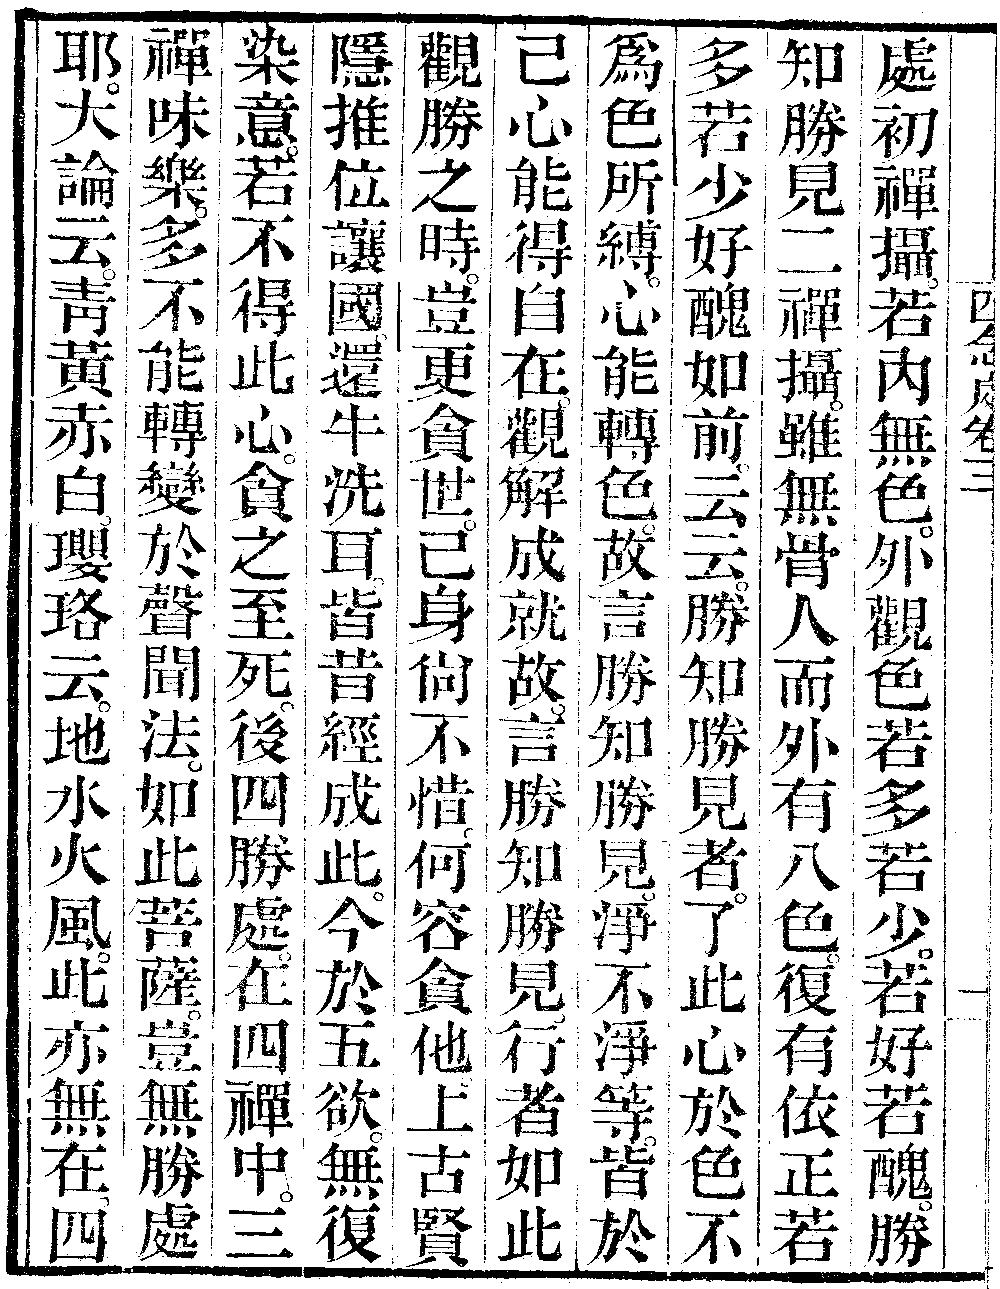 處初禪攝。若內無色。外觀色若多若少。若好若醜。勝
知勝見二禪攝。雖無骨人而外有八色。復有依正若
多若少好醜如前。云云。勝知勝見者。了此心於色不
爲色所縛。心能轉色。故言勝知勝見。淨不淨等。皆於
己心能得自在。觀解成就故。言勝知勝見。行者如此
觀勝之時。豈更貪世。己身尙不惜。何容貪他上古賢
隱推位讓國。還牛洗耳。皆昔經成此。今於五欲。無復
染意。若不得此心。貪之至死。後四勝處。在四禪中。三
禪味樂。多不能轉變於聲聞法。如此菩薩。豈無勝處
耶。大論云。靑黃赤白。瓔珞云。地水火風。此亦無在。四
四念處卷三
一